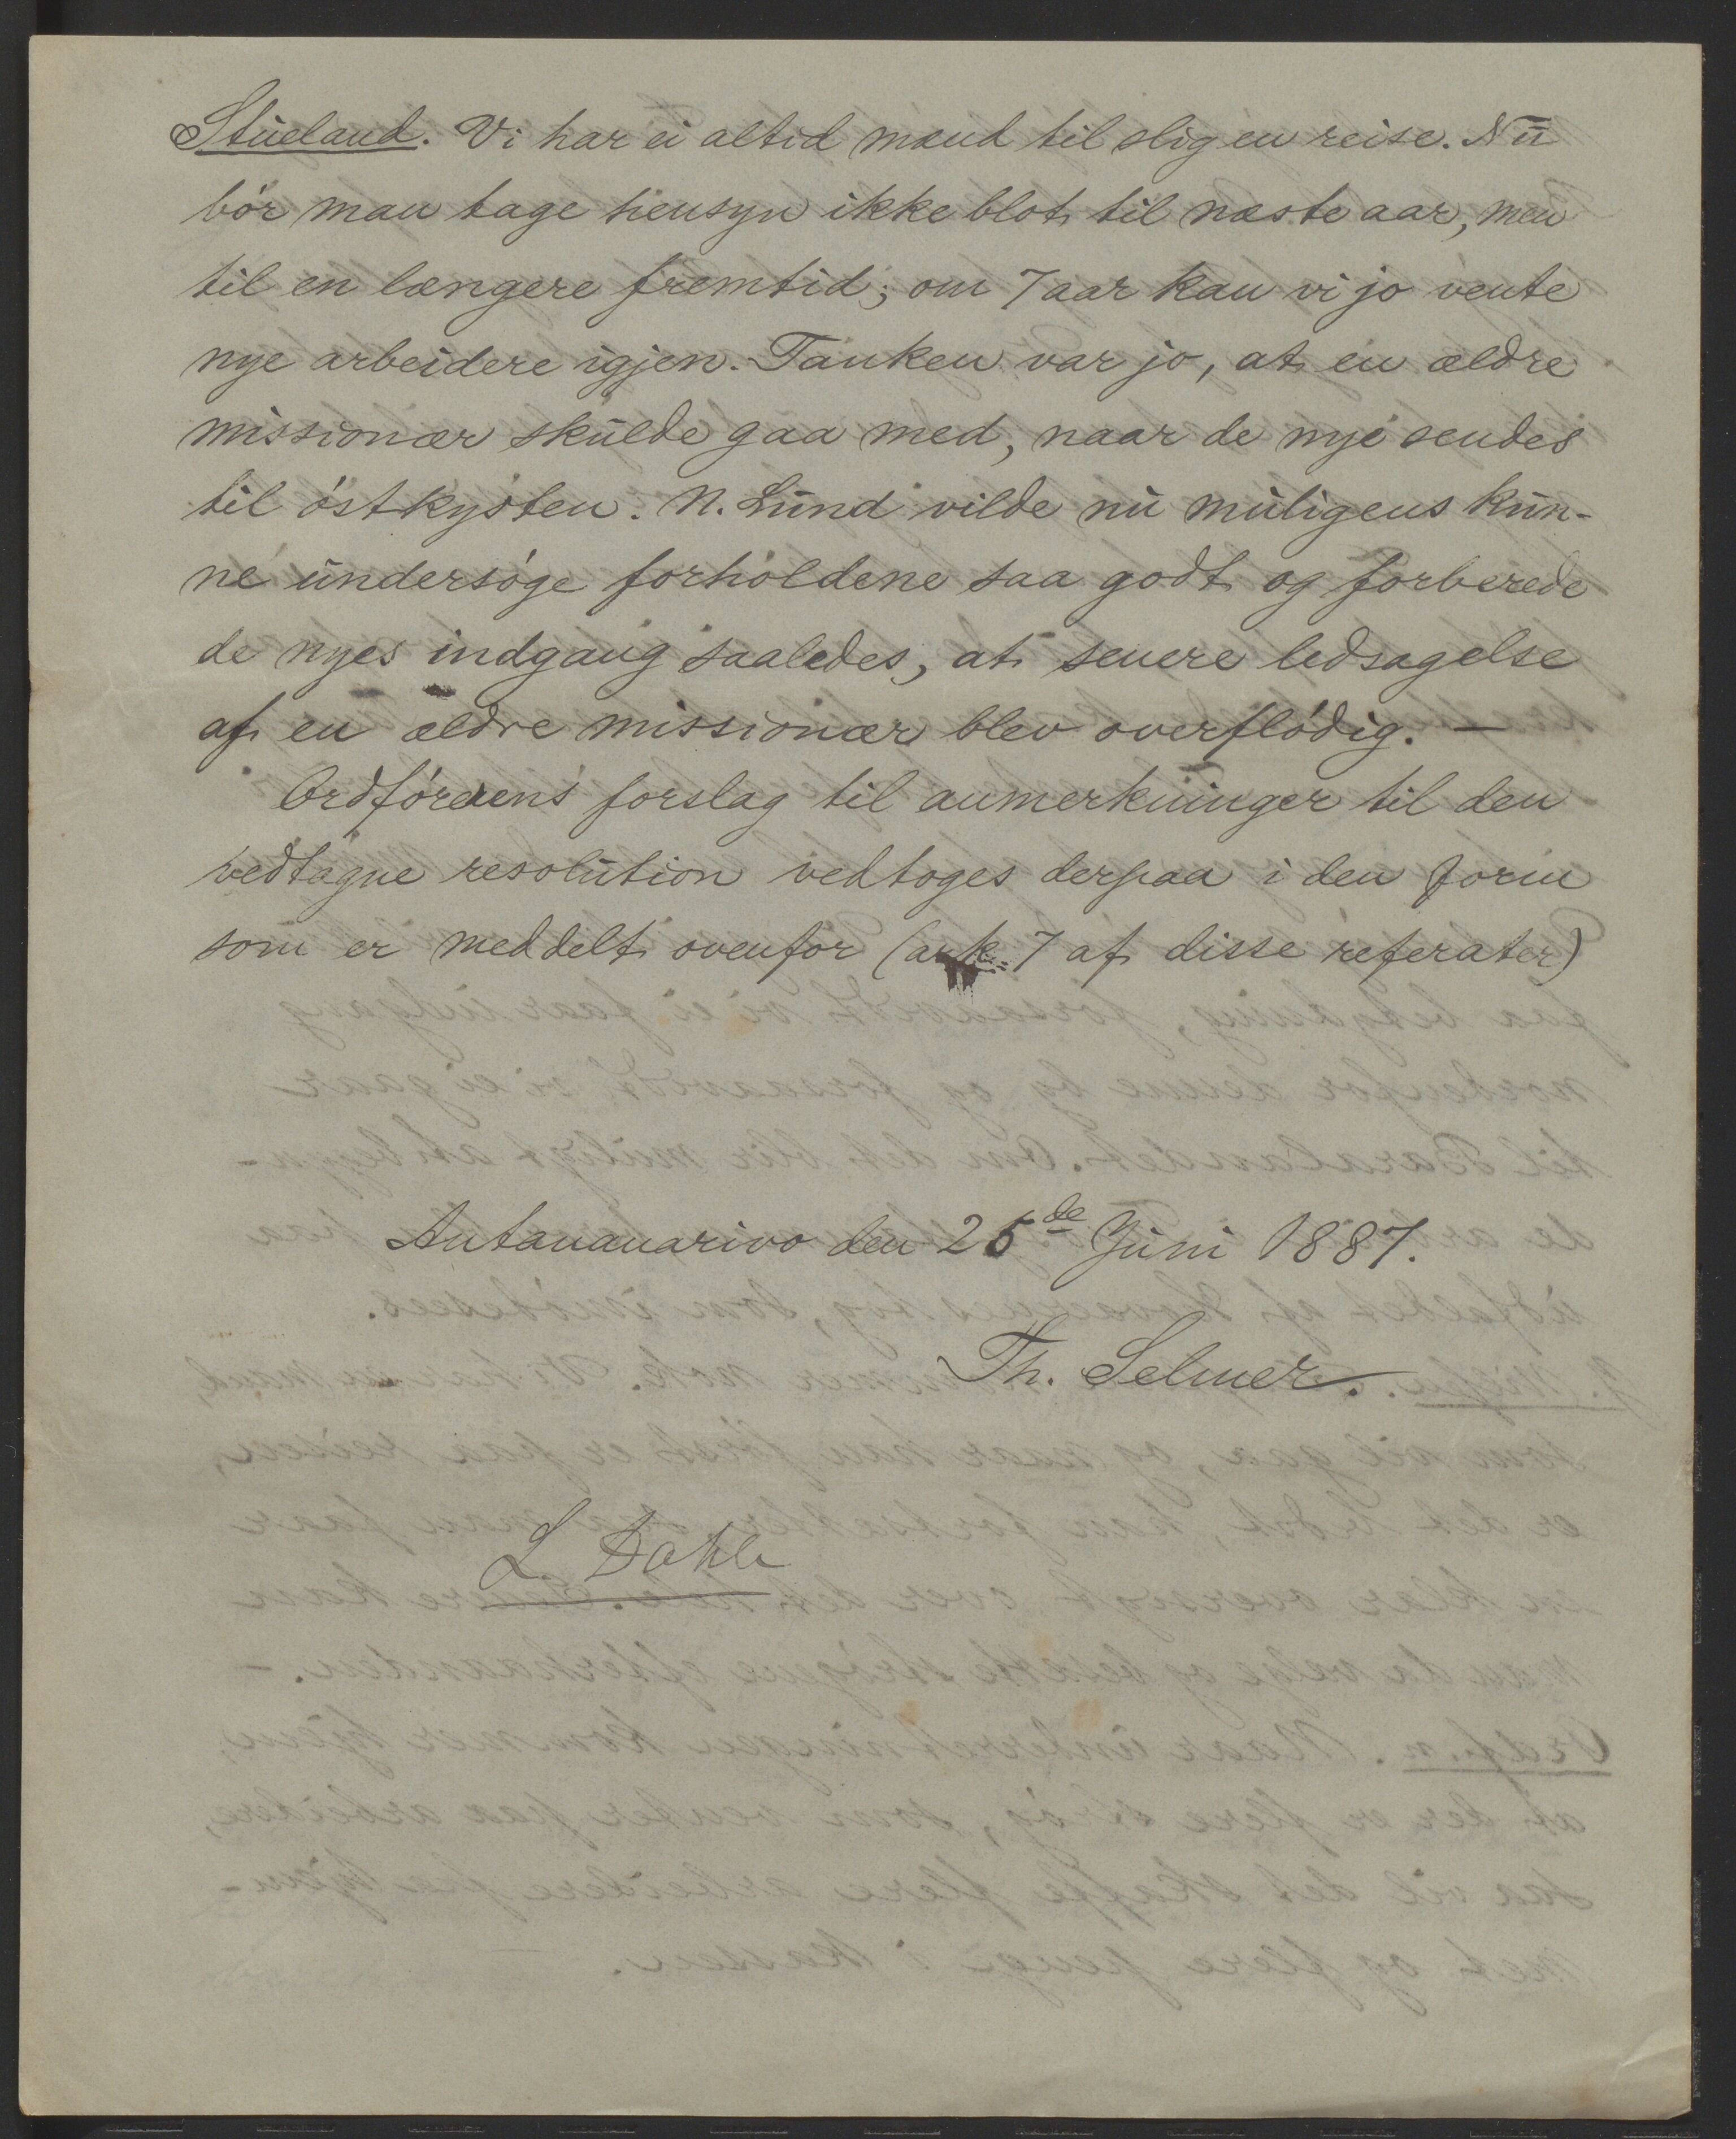 Stueland. Vi har ei altid mænd til slig en reise. Nu
bör man tage hensyn ikke blot til næste aar, men
til en længere fremtid; om 7 aar kan vi jo vente
nye arbeidere igjen. Tanken var jo, at en ældre
missionær skulde gaa med, naar de nye sendes
til östkysten. N. Lund vilde nu muligens kun-
ne undersöge forholdene saa godt og forberede
de nyes indgang saaledes, at senere ledsagelse
af en ældre missionær blev overflödig. —
Ordförerens forslag til anmerkninger til den
vedtagne resolution vedtoges derpaa i den form
som er meddelt ovenfor (ark. 7 af disse referater)
Antananarivo den 25de Juni 1887.
Th. Selmer.
L. Dahle